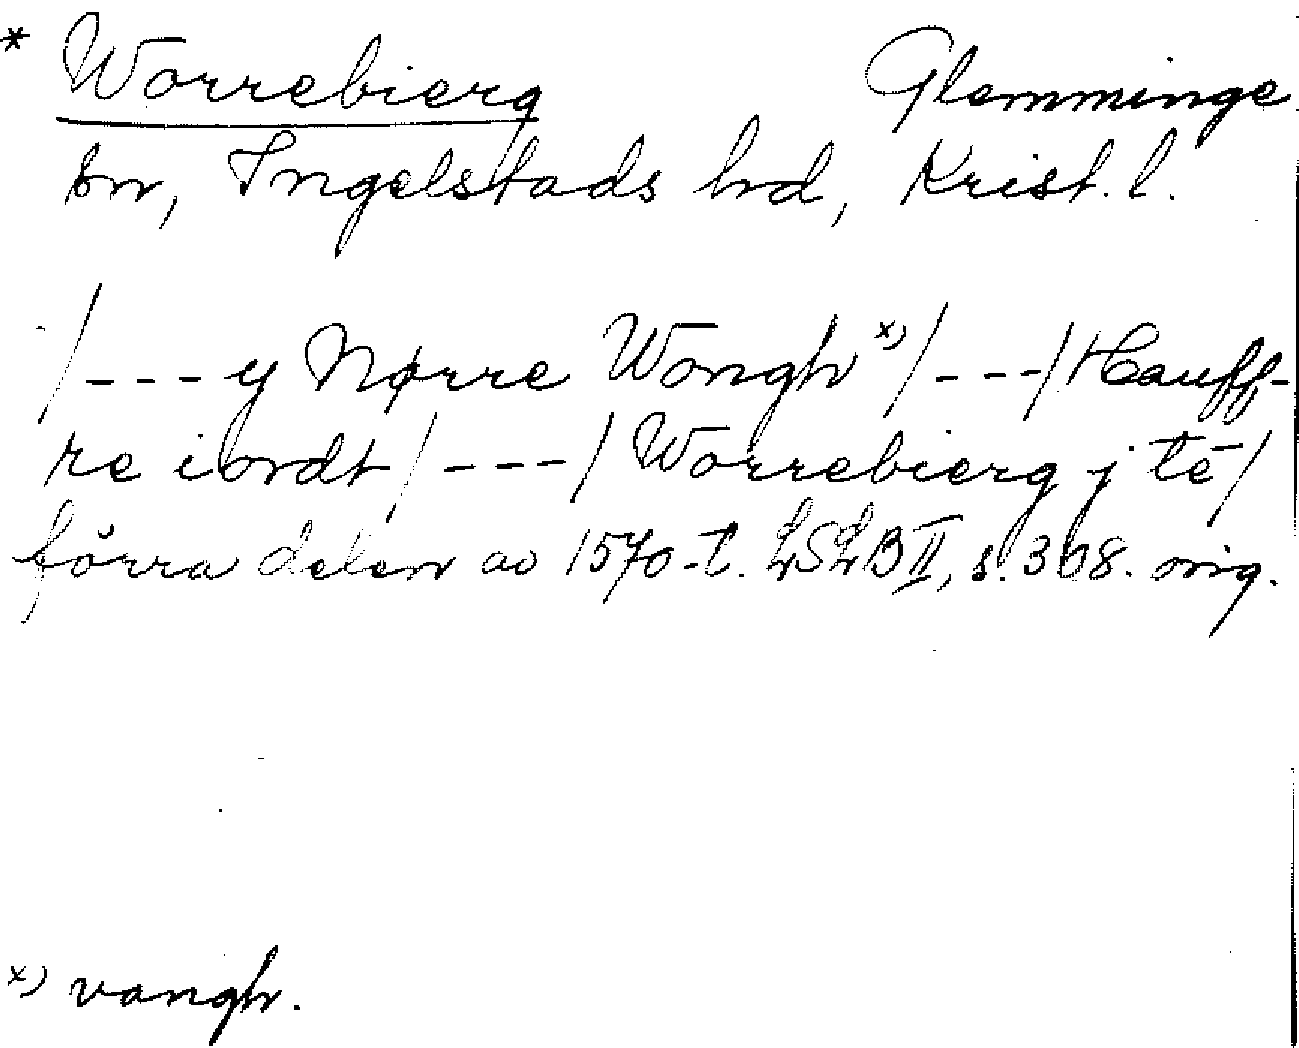 * Worrebierg Glemminge
sn, Ingelstads hd, Krist. l.
/---y Nørre Wongh x) /---/ Hauff-
re iordt /---/ Worrebierg j te /
förra delen av 1570-t. LSLB II, s. 308. orig.
x) vangh.